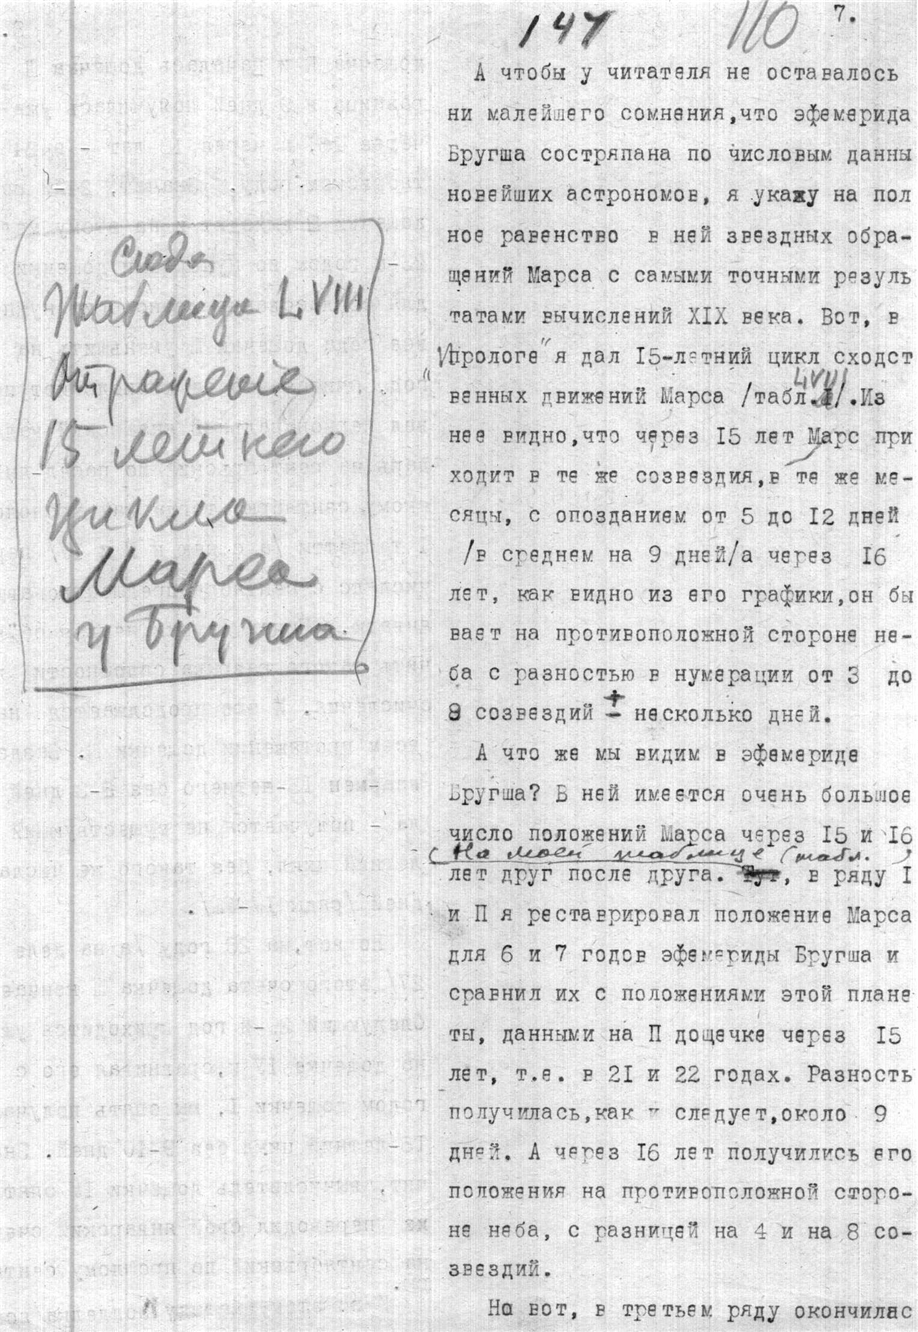 147 110 7.
А чтобы у читателя не оставалось
ни малейшего сомнения,что эфемерида
Бругша состряпана по числовым данны
новейших астрономов, я укажу на пол
ное равенство в ней звездных обра-
щений Марса с самыми точными резуль
татами вычислений XIX века. Вот, в
"Прологе" я дал 15-летний цикл сходст
венных движений Марса /табл. LVIII/.Из
нее видно,что через 15 лет Марс при
ходит в те же созвездия,в те же ме-
сяцы, с опозданием от 5 до 12 дней
/в среднем на 9 дней/а через 16
лет, как видно из его графики,он бы
вает на противоположной стороне не-
ба с разностью в нумерации от 3 до
8 созвездий ± несколько дней.
А что же мы видим в эфемериде
Бругша? В ней имеется очень большое
число положений Марса через 15 и 16
На моей таблице (табл. )
лет друг после друга. Тут, в ряду I
и П я реставрировал положение Марса
для 6 и 7 годов эфемериды Бругша и
сравнил их с положениями этой плане
ты, данными на П дощечке через 15
лет, т.е. в 21 и 22 годах. Разность
получилась,как и следует,около 9
дней. А через 16 лет получились его
положения на противоположной сторо-
не неба, с разницей на 4 и на 8 со-
звездий.
Но вот, в третьем ряду окончилас
Сюда
Таблица LVIII
Отражение
15 летнего
цикла
Марса
у Бругша